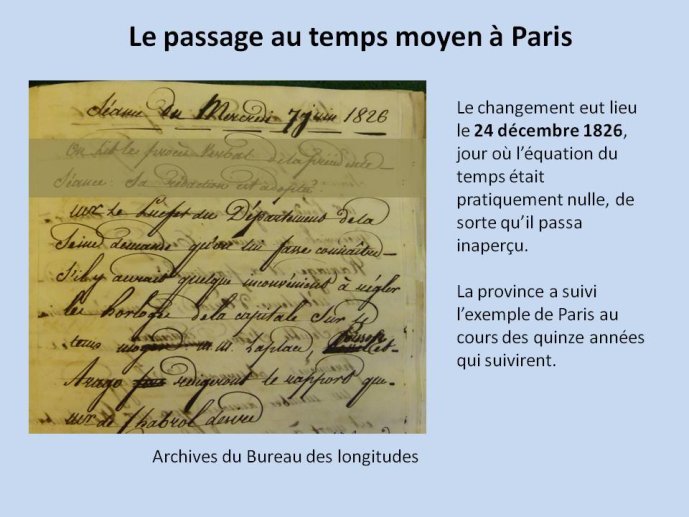 Le passage au temps moyen à Paris
Séance du Mercredi 7 juin 1826
On lit le procès Verbal de la précédente
Séance. Sa rédaction est adoptée.
Mr Le Préfet du Département de la
Seine demande qu'on lui fasse connaître
S'il y aurait quelque inconvénient à régler
les horloges de la capitale sur le
tems moyen M.M. Laplace, Poisson
Arago rédigeront le rapport que
Mr de Chabrol désire
Archives du Bureau des longitudes
Le changement eut lieu
le 24 décembre 1826,
jour où l’équation du
temps était
pratiquement nulle, de
sorte qu’il passa
inaperçu.
La province a suivi
l’exemple de Paris au
cours des quinze années
qui suivirent.